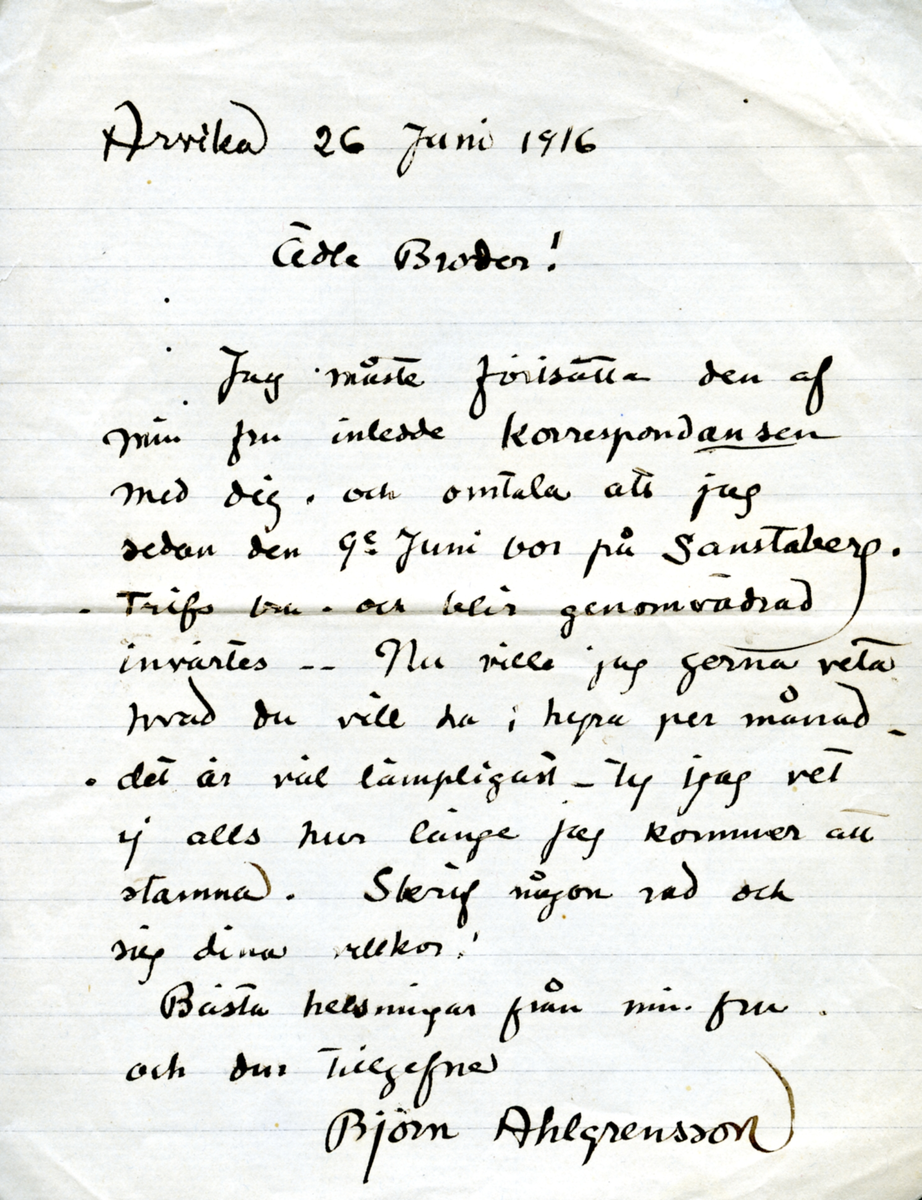 Arvika 26 Juni 1916
Ädle Broder!
Jag måste fortsätta den af
min fru inledde korrespondansen
med dig. och omtala att jag
sedan den 9e Juni bor på Sanstaberg.
Trifs bra. och blir genomvädrad
invärtes -- Nu ville jag gerna veta
hvad du vill ha i hyra per månad -
det är väl lämpligast - ty jag vet
ej alls hur länge jag kommer att
stanna. Skrif någon rad och
säg dina villkor!
Bästa helsningar från min fru
och din tillgifne
Björn Ahlgrensson